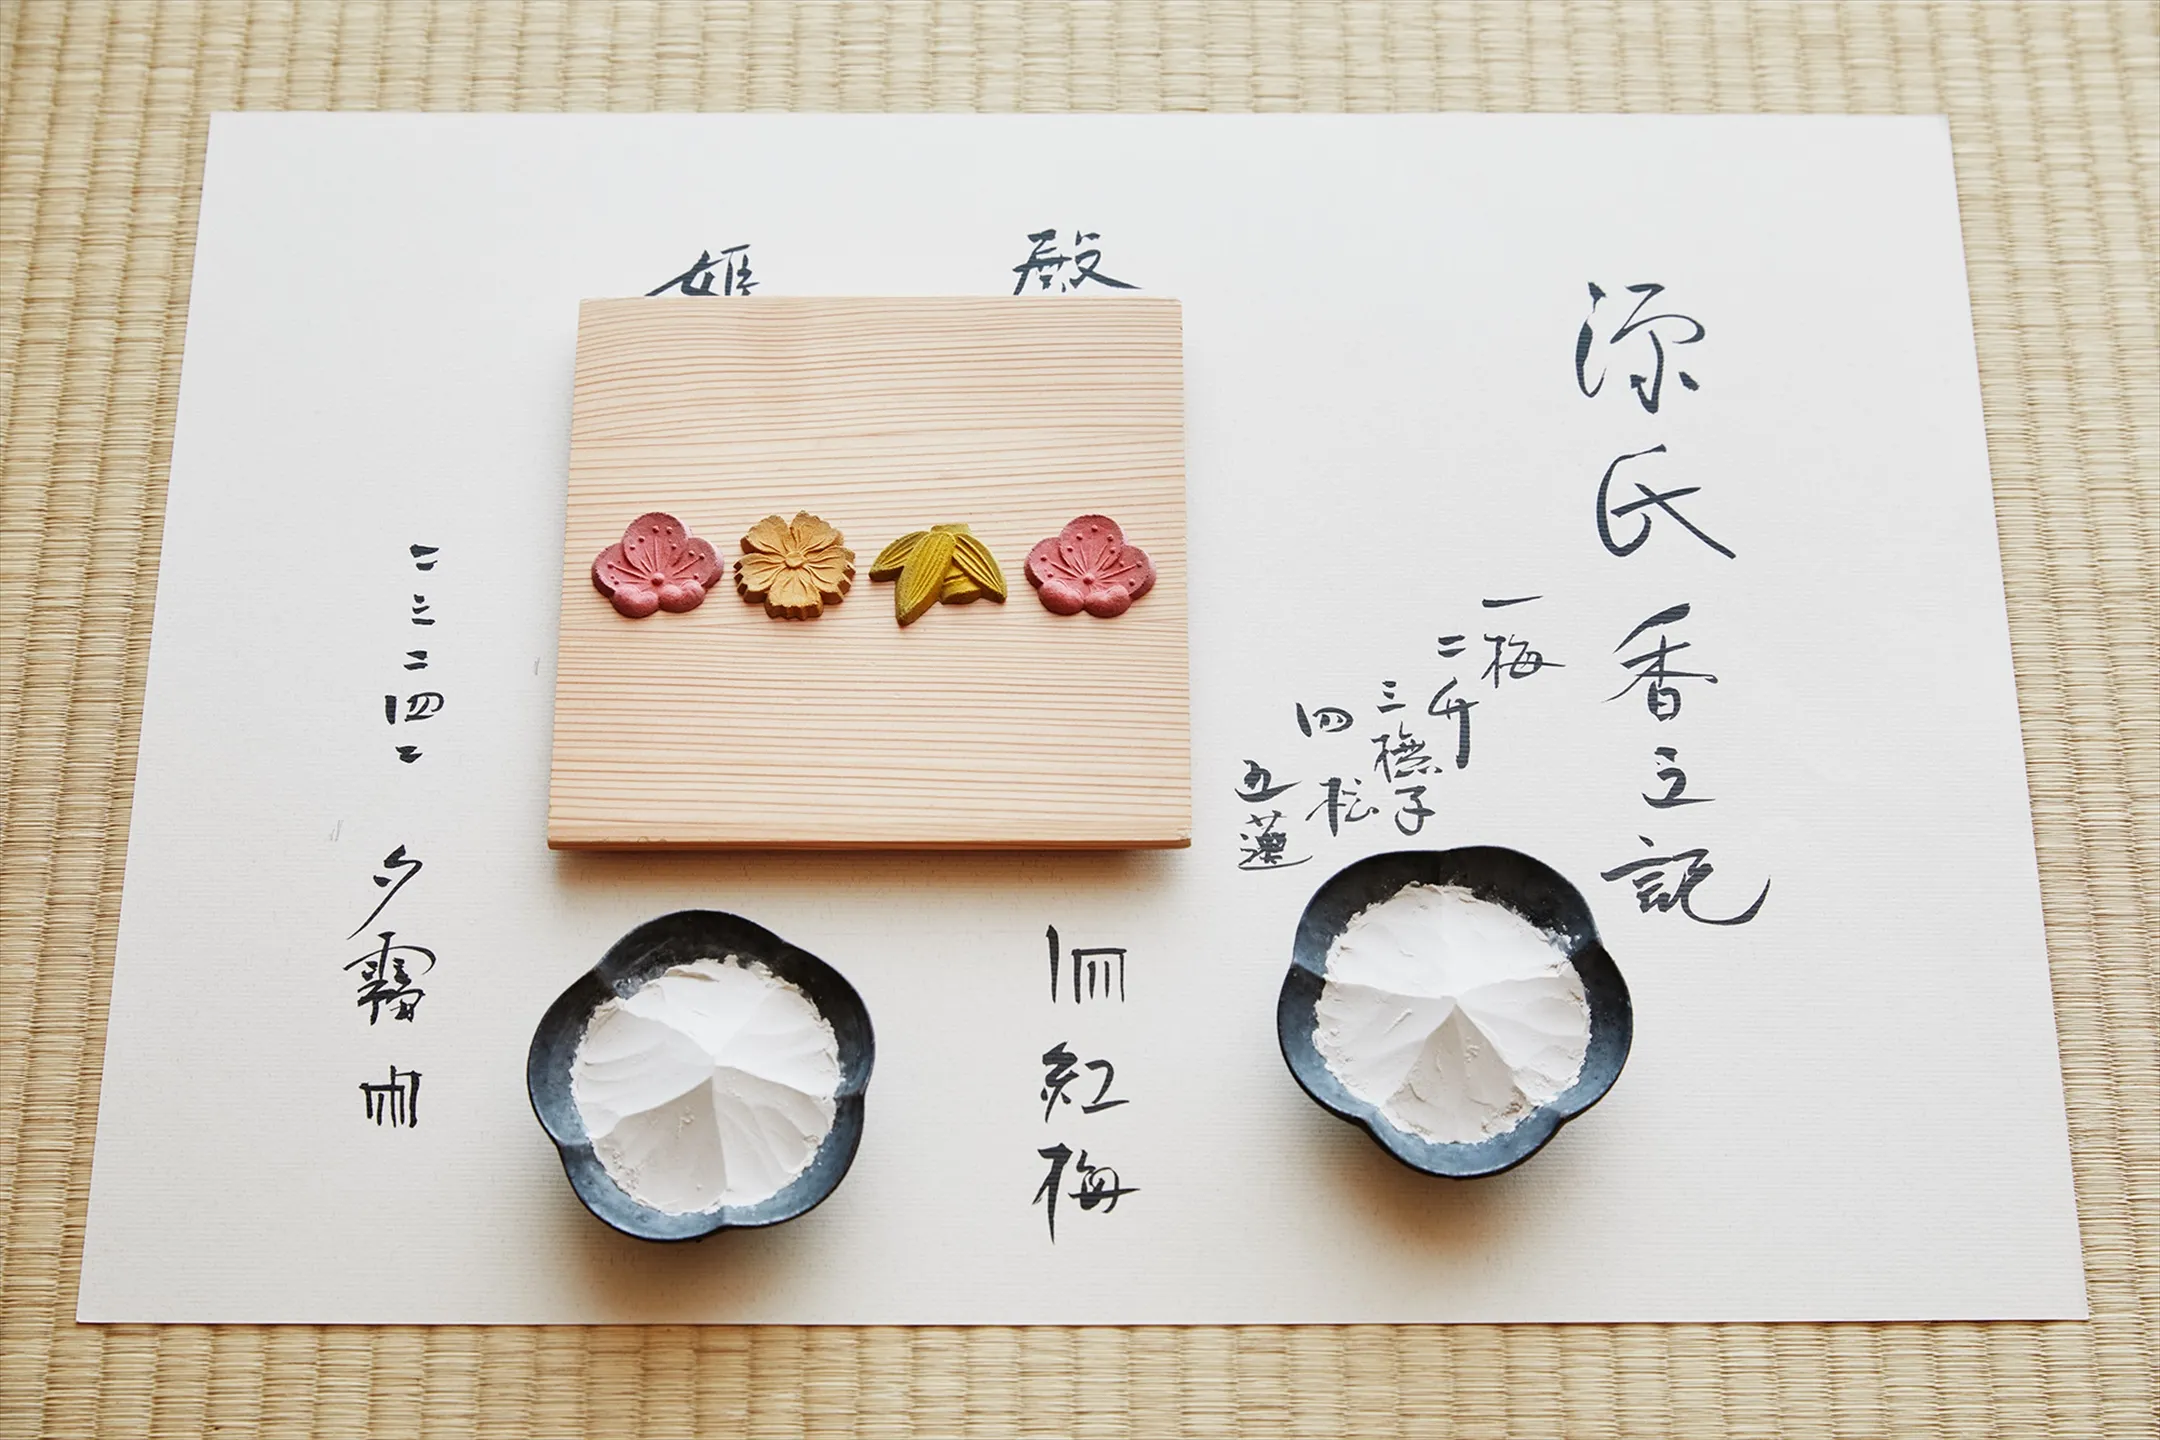 源氏香之記
一梅
二竹
三撫子
四松
五蓮
殿
紅梅
姫
二三二四二
夕霧